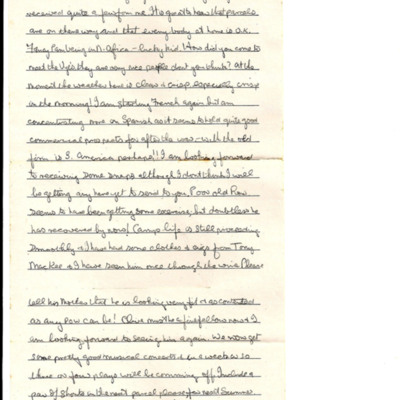 received quite a few from me. It is good to hear that parcels
are on their way and that every body at home is O.K.
Fancy Ron being in N. Africa - lucky kid! How did you come to
meet the they are very nice people don't you think? At the
moment the weather here is clear & crisp, especially crisp
in the morning! I am studying French again but am
concentrating more on Spanish as it seems to hold quite good
commercial prospects for after the war - with the old
firm in S. America perhaps!! I am looking forward
to receiving some snaps although I don't think I will
be getting any here yet to send to you. Poor old
seems to have been getting some exercise, but doubtless he
has recovered by now! Camp life is still proceeding
smoothly & I have had some clothes & cigs from Tony
& I have seen him once through the wire. Please
tell his Mother that he is looking very fit & as contented
as any POW can be! Clive must be a fine fellow now & I
am looking forward to seeing him again. We now get
some pretty good musical concerts once a week or so
there are few plays will be coming off. Include a
pair of shorts in the next parcel please for next Summer